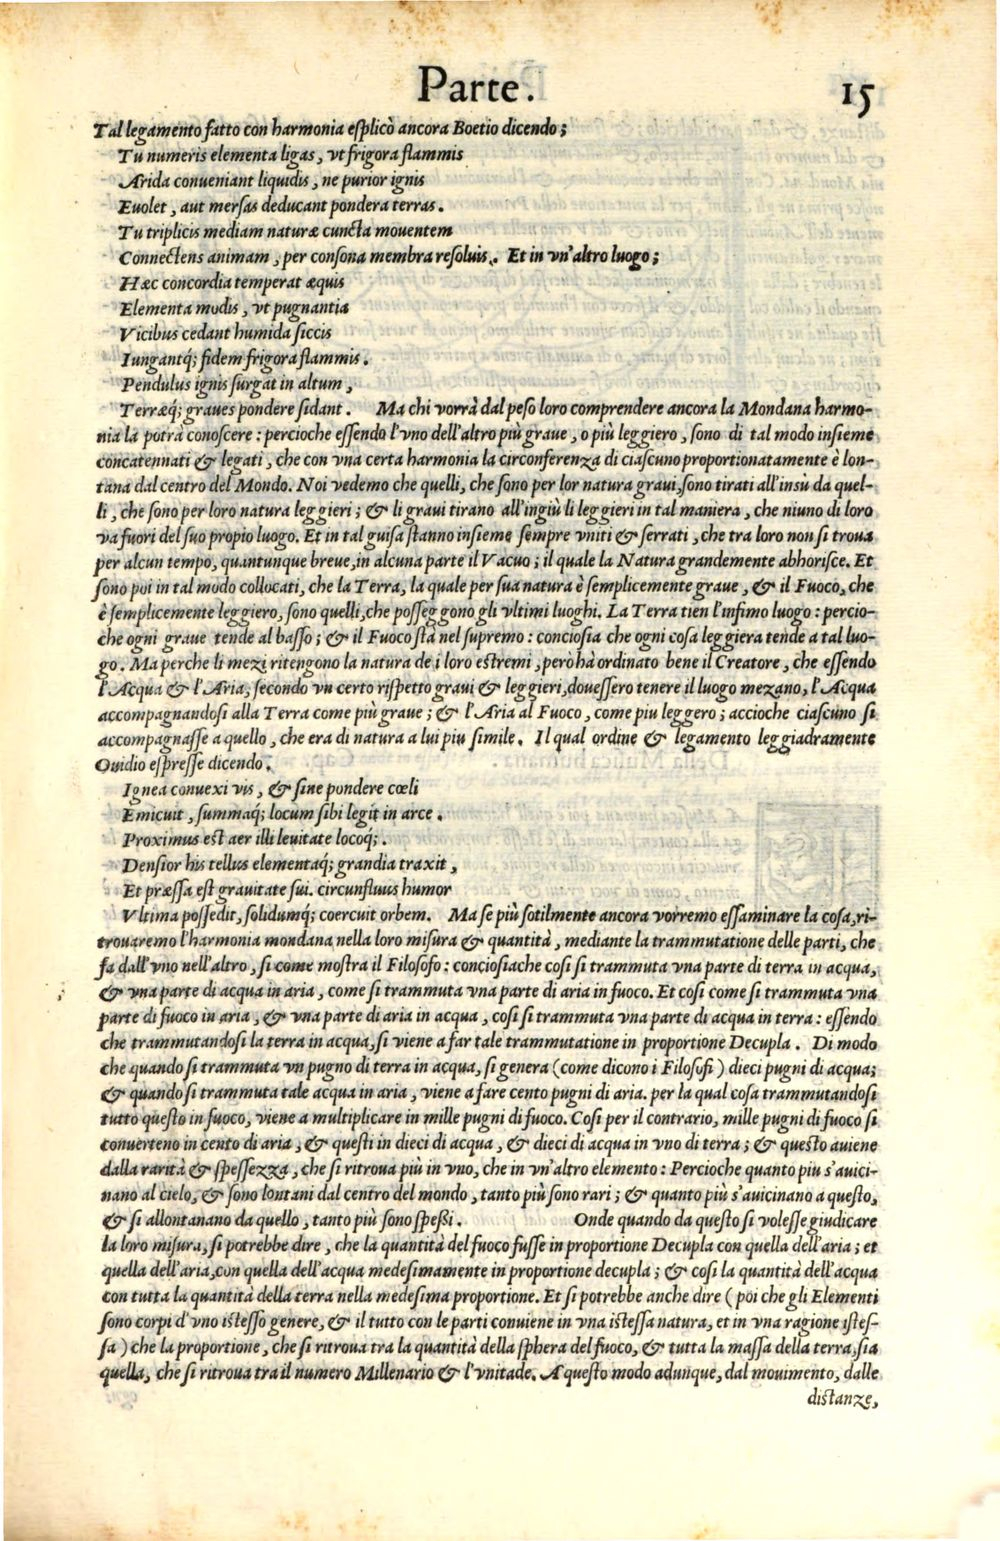 Parte. 15
Tal legamento fatto con harmonia esplicò ancora Boetio dicendo;
Tu numeris elementa ligas, vt frigora flammis
Arida conueniant liquidis, ne purior ignis
Euolet, aut mersas deducant pondera terras.
Tu triplicis mediam naturæ cuncta mouentem
Connectens animam, per consona membra resoluis. Et in vn'altro luogo;
Hæc concordia temperat æquis
Elementa modis, vt pugnantia
Vicibus cedant humida siccis
Iungantq́; fidem frigora flammis.
Pendulus ignis surgat in altum,
Terræq́; graues pondere sidant. Ma chi vorrà dal peso loro comprendere ancora la Mondana harmo-
nia la potrà conoscere: percioche essendo l'vno dell'altro più graue, o più leggiero, sono di tal modo insieme
concatennati & legati, che con vna certa harmonia la circonferenza di ciascuno proportionatamente è lon-
tana dal centro del Mondo. Noi vedemo che quelli, che sono per lor natura graui, sono tirati all'insù da quel-
li, che sono per loro natura leggieri; & li graui tirano all'ingiù li leggieri in tal maniera, che niuno di loro
và fuori del suo propio luogo. Et in tal guisa stanno insieme sempre vniti & serrati, che tra loro non si troua
per alcun tempo, quantunque breue, in alcuna parte il Vacuo; il quale la Natura grandemente abhorisce. Et
sono poi in tal modo collocati, che la Terra, la quale per sua natura è semplicemente graue, & il Fuoco, che
è semplicemente leggiero, sono quelli, che posseggono gli vltimi luoghi. La Terra tien l'infimo luogo: percio-
che ogni graue tende al basso; & il Fuoco stà nel supremo: conciosia che ogni cosa leggiera tende a tal luo-
go. Ma perche li mezi ritengono la natura de i loro estremi, però hà ordinato bene il Creatore, che essendo
l'Acqua & l'Aria, secondo vn certo rispetto graui & leggieri, douessero tenere il luogo mezano, l'Acqua
accompagnandosi alla Terra come più graue; & l'Aria al Fuoco, come piu leggero; accioche ciascuno si
accompagnasse a quello, che era di natura a lui piu simile. Il qual ordine & legamento leggiadramente
Ouidio espresse dicendo.
Ignea conuexi vis, & sine pondere cœli
Emicuit, summaq́; locum sibi legit in arce.
Proximus est aer illi leuitate locoq́;.
Densior his tellus elementaq́; grandia traxit,
Et præssa est grauitate sui. circunfluus humor
Vltima possedit, solidumq́; coercuit orbem. Ma se più sotilmente ancora vorremo essaminare la cosa, ri-
trouaremo l'harmonia mondana nella loro misura & quantità, mediante la trammutatione delle parti, che
fa dall'vno nell'altro, si come mostra il Filosofo: conciosiache cosi si trammuta vna parte di terra in acqua,
& vna parte di acqua in aria, come si trammuta vna parte di aria in fuoco. Et cosi come si trammuta vna
parte di fuoco in aria, & vna parte di aria in acqua, cosi si trammuta vna parte di acqua in terra: essendo
che trammutandosi la terra in acqua, si viene a far tale trammutatione in proportione Decupla. Di modo
che quando si trammuta vn pugno di terra in acqua, si genera (come dicono i Filosofi) dieci pugni di acqua;
& quando si trammuta tale acqua in aria, viene a fare cento pugni di aria. per la qual cosa trammutandosi
tutto questo in fuoco, viene a multiplicare in mille pugni di fuoco. Cosi per il contrario, mille pugni di fuoco si
conuerteno in cento di aria, & questi in dieci di acqua, & dieci di acqua in vno di terra; & questo auiene
dalla rarità & spessezza, che si ritroua più in vno, che in vn'altro elemento: Percioche quanto piu s'auici-
nano al cielo, & sono lontani dal centro del mondo, tanto più sono rari; & quanto più s'auicinano a questo,
& si allontanano da quello, tanto più sono spessi. Onde quando da questo si volesse giudicare
la loro misura, si potrebbe dire, che la quantità del fuoco fusse in proportione Decupla con quella dell'aria; et
quella dell'aria, con quella dell'acqua medesimamente in proportione decupla; & cosi la quantità dell'acqua
con tutta la quantità della terra nella medesima proportione. Et si potrebbe anche dire (poi che gli Elementi
sono corpi d'vno istesso genere, & il tutto con le parti conuiene in vna istessa natura, et in vna ragione istes-
sa) che la proportione, che si ritroua tra la quantità della sphera del fuoco, & tutta la massa della terra, sia
quella, che si ritroua tra il numero Millenario & l'vnitade. A questo modo adunque, dal mouimento, dalle
distanze,